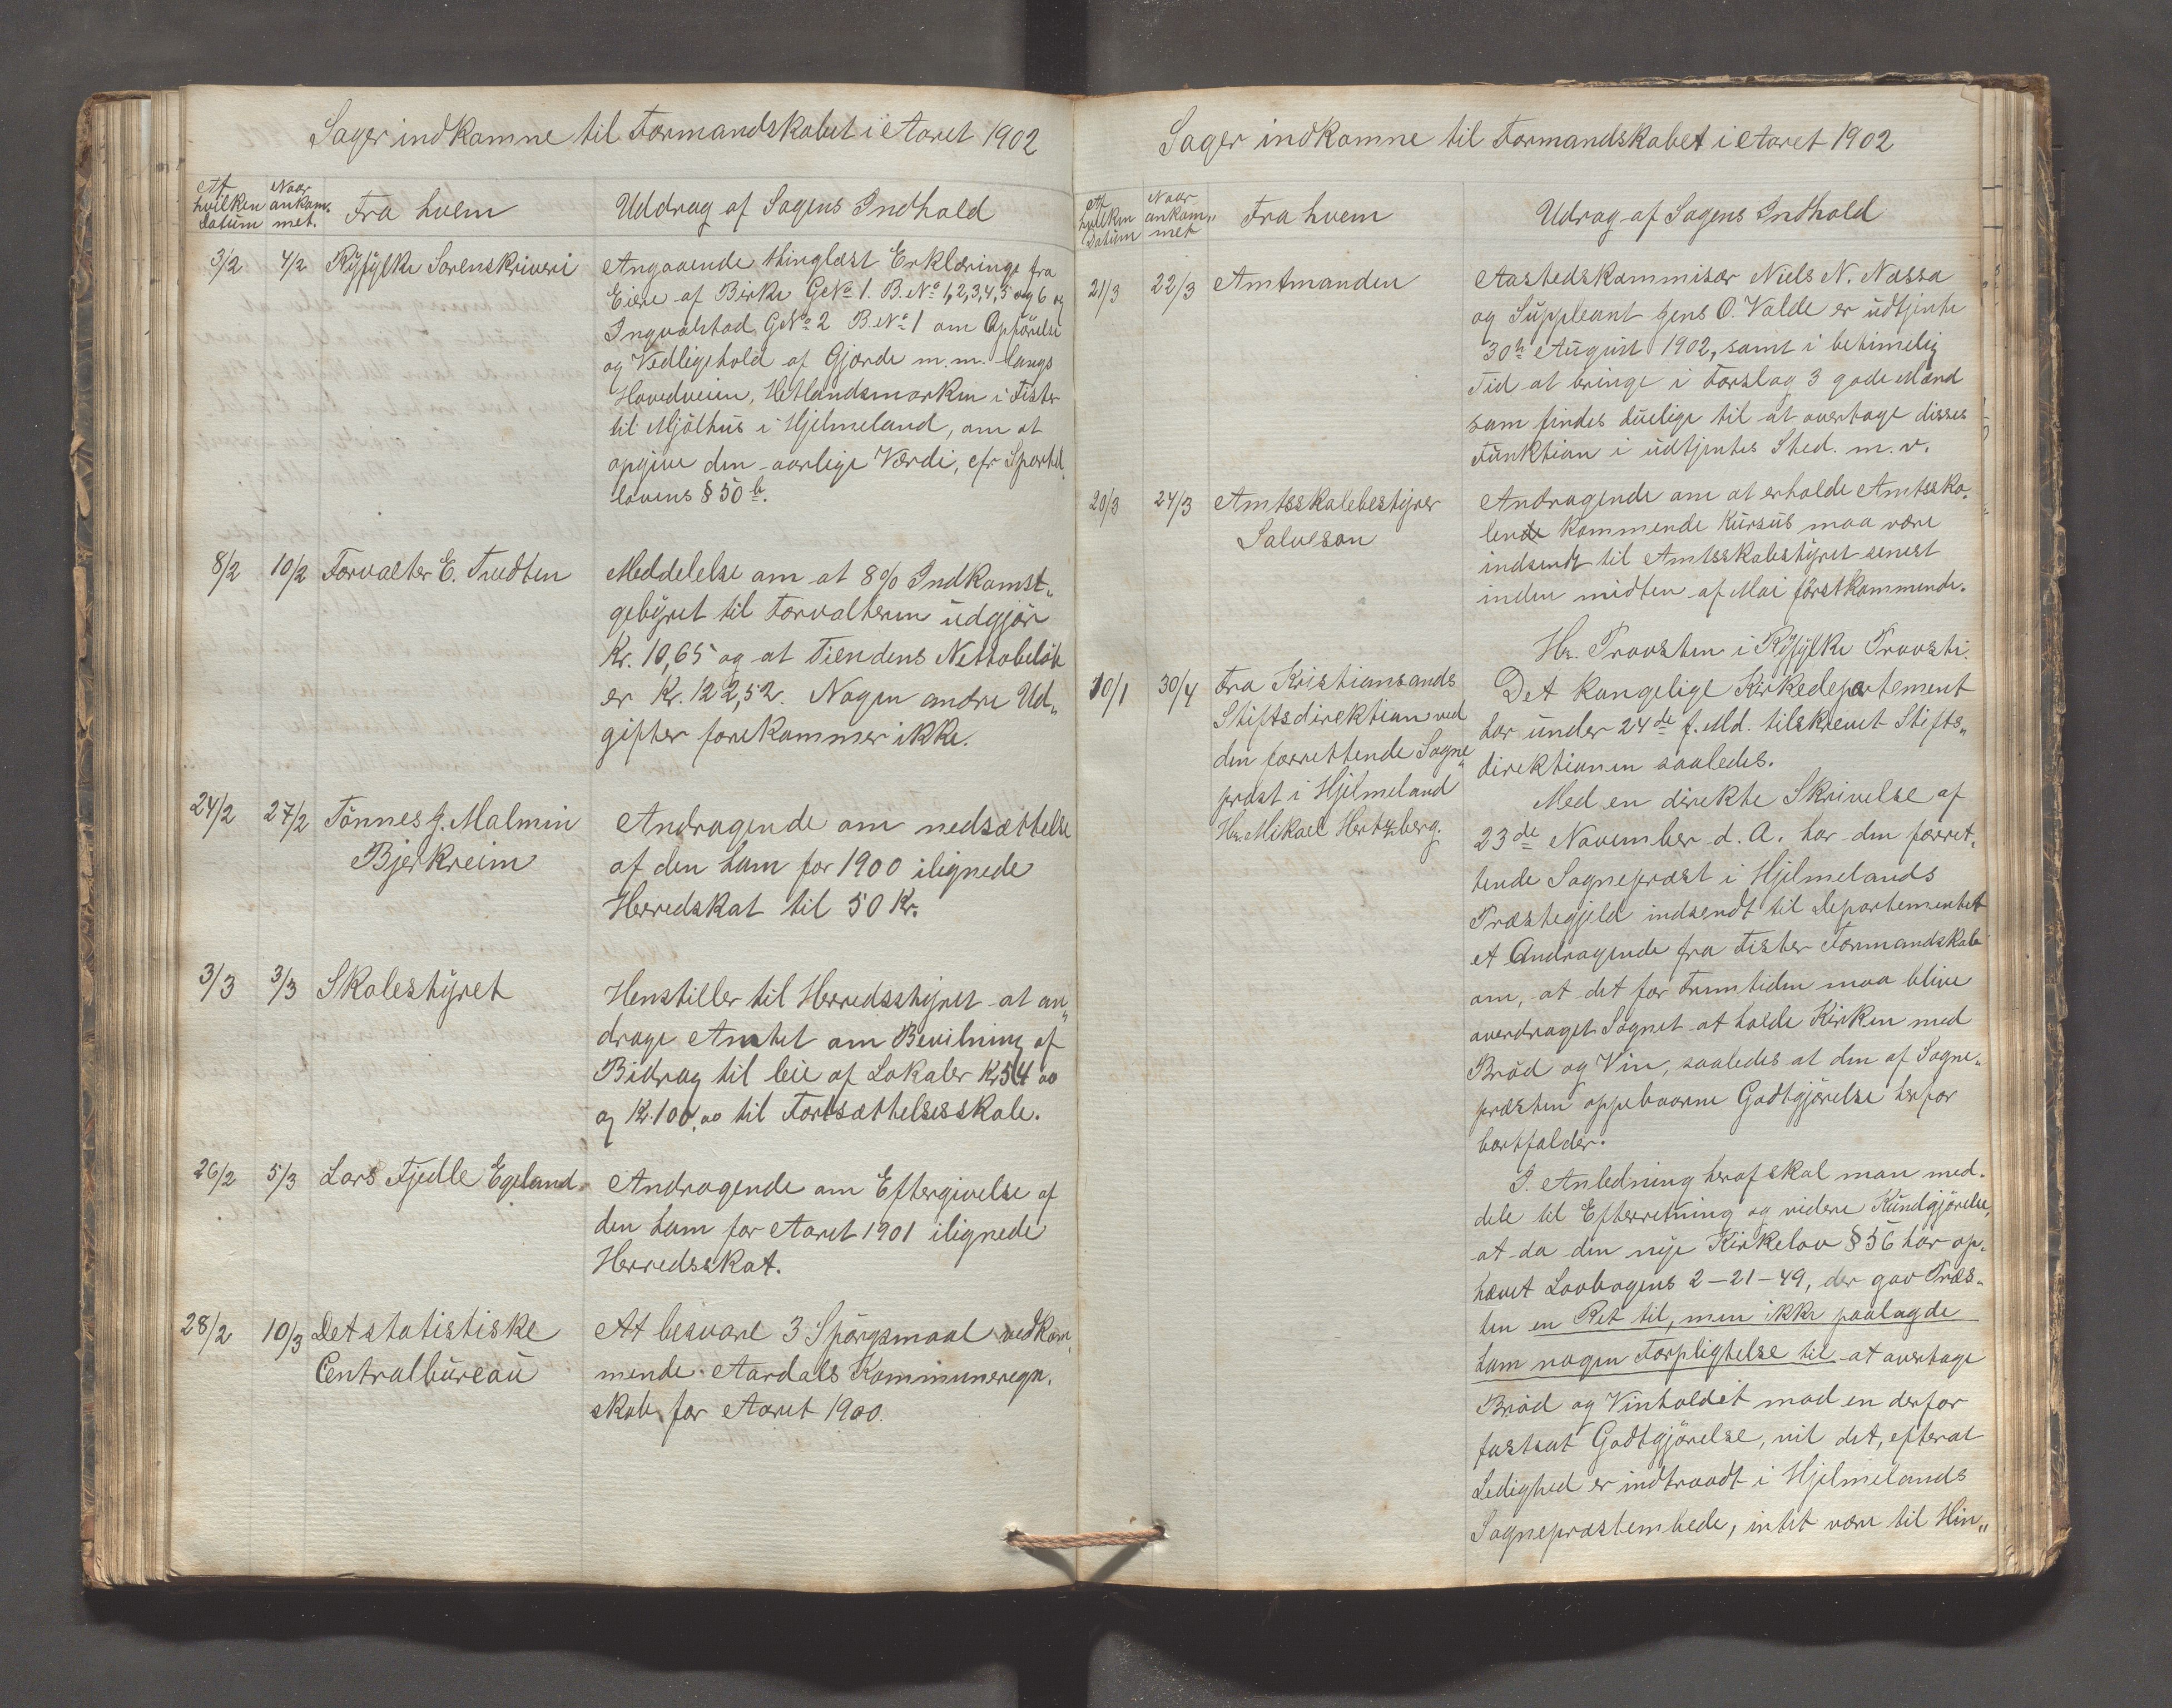 Sager indkomne til Formandskabet i Aaret 1902
Af hvilken Datum
Naar ankom- met.
Fra hvem
Uddrag af Sagens Indhold
3/2 4/2 Ryfylke Sorenskriveri
Angaaende thinglæst Erklæringe fra
Eiere af Birke G.No 1. B.No 1,2,3,4,5 og 6 og
Ingvalstad G.No 2 B.No 1 om Opførelse
og Vedligehold af Gjærde m.m. langs
Hovedveien, Hetlandsmarken i Fister
til Mjølhus i Hjelmeland, om at
opgive den aarlige Værdi, cfr Sportel
lovens § 50 b.
8/2 10/2 Forvalter E. Tvedten
Meddelelse om at 8% Indkomst„
gebyret til Forvalteren udgjør
Kr. 10,65 og at Tiendens Nettobeløb
er Kr. 122,52. Nogen andre Ud„
gifter forekommer ikke.
24/2 27/2 Tønnes J. Malmin
Bjerkreim
Andragende om nedsættelse
af den ham for 1900 ilignede
Herredskat til 50 Kr.
3/3 3/3 Skolestyret
Henstiller til Herredsstyret at an„
drage Amtet om Bevilning af
Bidrag til leie af Lokaler Kr 54 00
og Kr. 100,00 til Fortsættelsesskole.
26/2 5/3 Lars Fjedle Egeland.
Andragende om Eftergivelse af
den ham for Aaret 1901 ilignede
Herredsskat.
28/2 10/3 Det statistiske
Centralbureau
At besvare 3 Spørgsmaal vedkom„
mende Aardals Kommuneregn.
skab for Aaret 1900.
Sager indkomne til Formandskabet i Aaret 1902
Af hvilken Datum
Naar ankom„ met
Fra hvem
Udrag af Sagens Indhold
21/3 22/3 Amtmanden
Aastedskommisær Niels N. Nessa
og Suppleant Jens O. Valde er udtjente
30te August 1902, samt i betimelig
Tid at bringe i Forslag 3 gode Mænd
som findes duelige til at overtage disses
Funktion i udtjentes Sted. m. v.
20/3 24/3 Amtsskolebestyrer
Salveson
Andragende om at erholde Amtssko„
lende kommende Kursus maa være
indsendt til Amtsskolestyret senest
inden midten af Mai førstkommende.
Hr. Provsten i Ryfylke Provsti.
10/1 30/4 Fra Kristiansands
Stiftsdirektion ved
den forrettende Sogne„
præst i Hjelmeland
Hr. Mikael Hertzberg.
Det kongelige Kirkedepartement
har under 24de f. Md. tilskrevet Stifts„
direktionen saaledes.
Med en direkte Skrivelse af
23de November d. A. har den forret„
tende Sognepræst i Hjelmelands
Præstegjeld indsendt til Departementet
et Andragende fra Fister Formandskab
om, at det for Fremtiden maa blive
overdraget Sognet at holde Kirken med
Brød og Vin, saaledes at den af Sogne„
præsten oppebaarne Godtgjørelse herfor
bortfalder.
I Anledning heraf skal man med„
dele til Efterretning og videre Kundgjørelse,
at da den nye Kirkelov § 56 har op„
hævet Lovbogens 2-21-49, der gav Præs„
ten en Ret til, men ikke paalagde
ham nogen Forpligtelse til at overtage
Brød og Vinholdet mod en derfor
fastsat Godtgjørelse, vil det, efterat
Ledighed er indtraadt i Hjelmelands
Sognepræstembede, intet være til Hin„